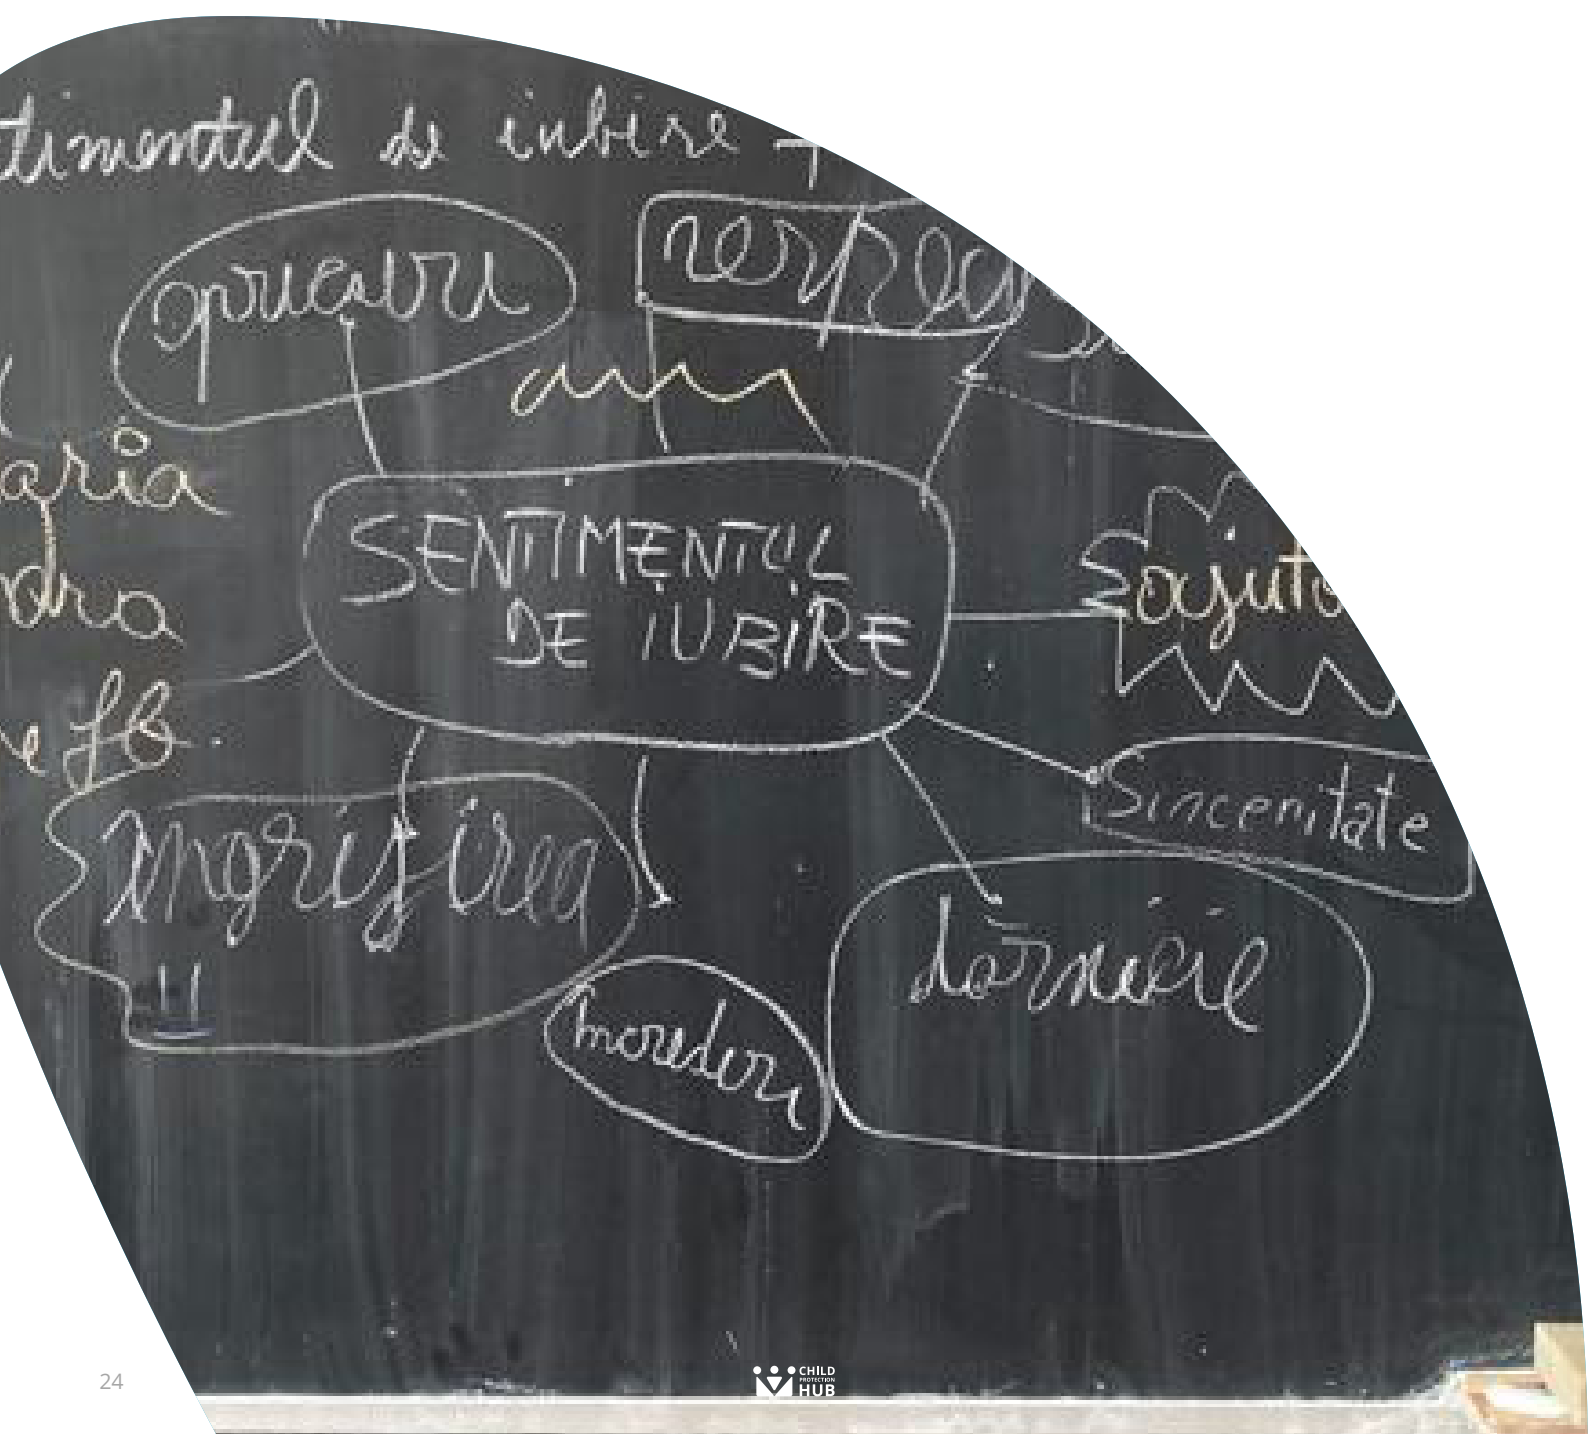 timentul de iubire +
respec
aria
dra
e fb.
SENTIMENTUL
DE IUBIRE
ajuto
Sinceritate
îngrijirea
dărnicie
24
CHILD
PROTECTION
HUB